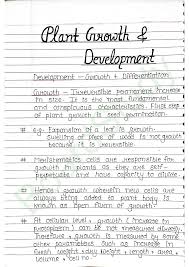 Plant Growth &
Development
Development - Growth + Differentiation
Growth - Irreversible permanent increase
in size. It is the most fundamental
and conspicuous characteristics. First step
of plant growth is seed germination.
# e.g. Expansion of a leaf is growth.
Swelling of piece of wood is not growth
because it is irreversible.
# Meristematic cells are responsible for
growth in plants as they are self-
perpetuate and have capacity to divide.
# Hence, growth wherein new cells are
always being added to plant body is
known as open form of growth.
# At cellular level, growth (increase in
protoplasm) can be not measured directly.
Therefore, growth is measured by some
other parameters such as increase in
fresh weight, dry weight, length, area,
volume, cell no.